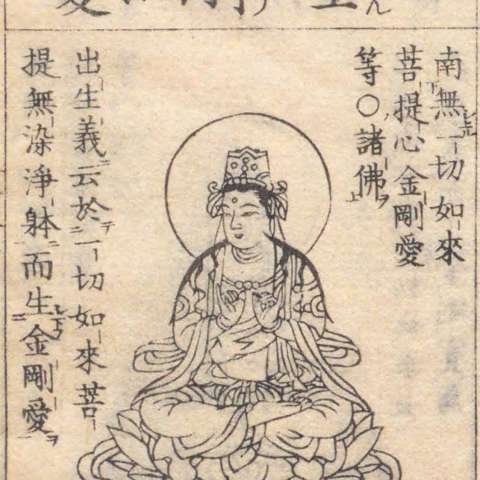 南無一切如來
菩提心金剛愛
等〇諸佛
出生義云於一切如來菩
提無染淨躰而生金剛愛